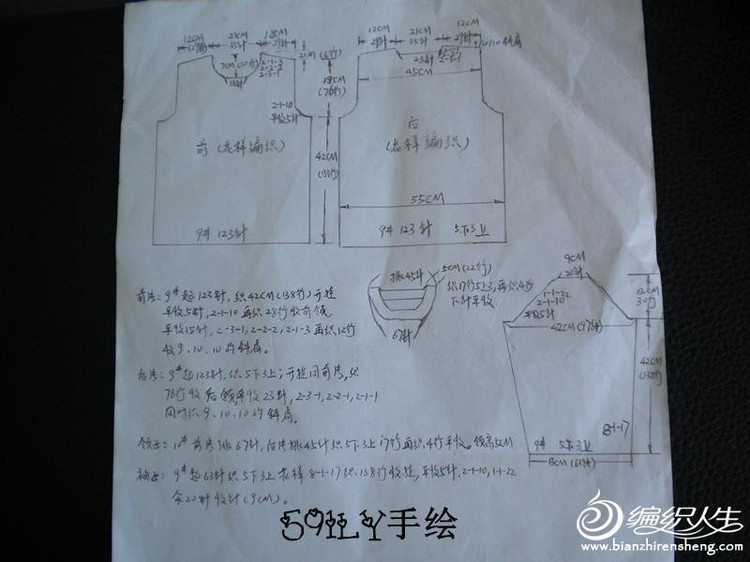 12CM 21CM 12CM
(29针) 35针 29针
7CM(20行) 2-1-3
2-2-2
2-3-1
15针
2CM
18CM
(76行)
2-1-10
平收5针
前(花样编织)
42CM
(138行)
9# 123针
12CM 21CM 12CM
29针 35针 29针
23针
9/10/10斜肩
45CM
后
(花样编织)
55CM
9# 123针 5下3上
前片: 9#起123针, 织42CM(138行)开挂
平收5针, 2-1-10 再织28行收前领
平收15针, 2-3-1, 2-2-2, 2-1-3 再织12行
收9、10、10的斜肩。
后片: 9#起123针, 织5下3上; 开挂同前片, 织
76行收后领平收23针, 2-3-1, 2-2-1, 2-1-1
同时织9、10、10的斜肩。
挑45针
67针
5CM(22行)
织17行5上3, 再织4行
下针平收。
9CM
20针
1-1-22
2-1-10
平收5针
12CM
30行
42CM(97针)
42CM
(138行)
8-1-17
9# 5下3上
(63针)
领口: 10#前片挑67针, 后片挑45针织5下3上17行再织4行平收。领高5CM
袖口: 9#起63针织5下3上花样8-1-17织138行收挂, 平收5针, 2-1-10, 1-1-22
余20针收针(9CM)。
59ILY手绘
编织人生
www.bianzhirensheng.com